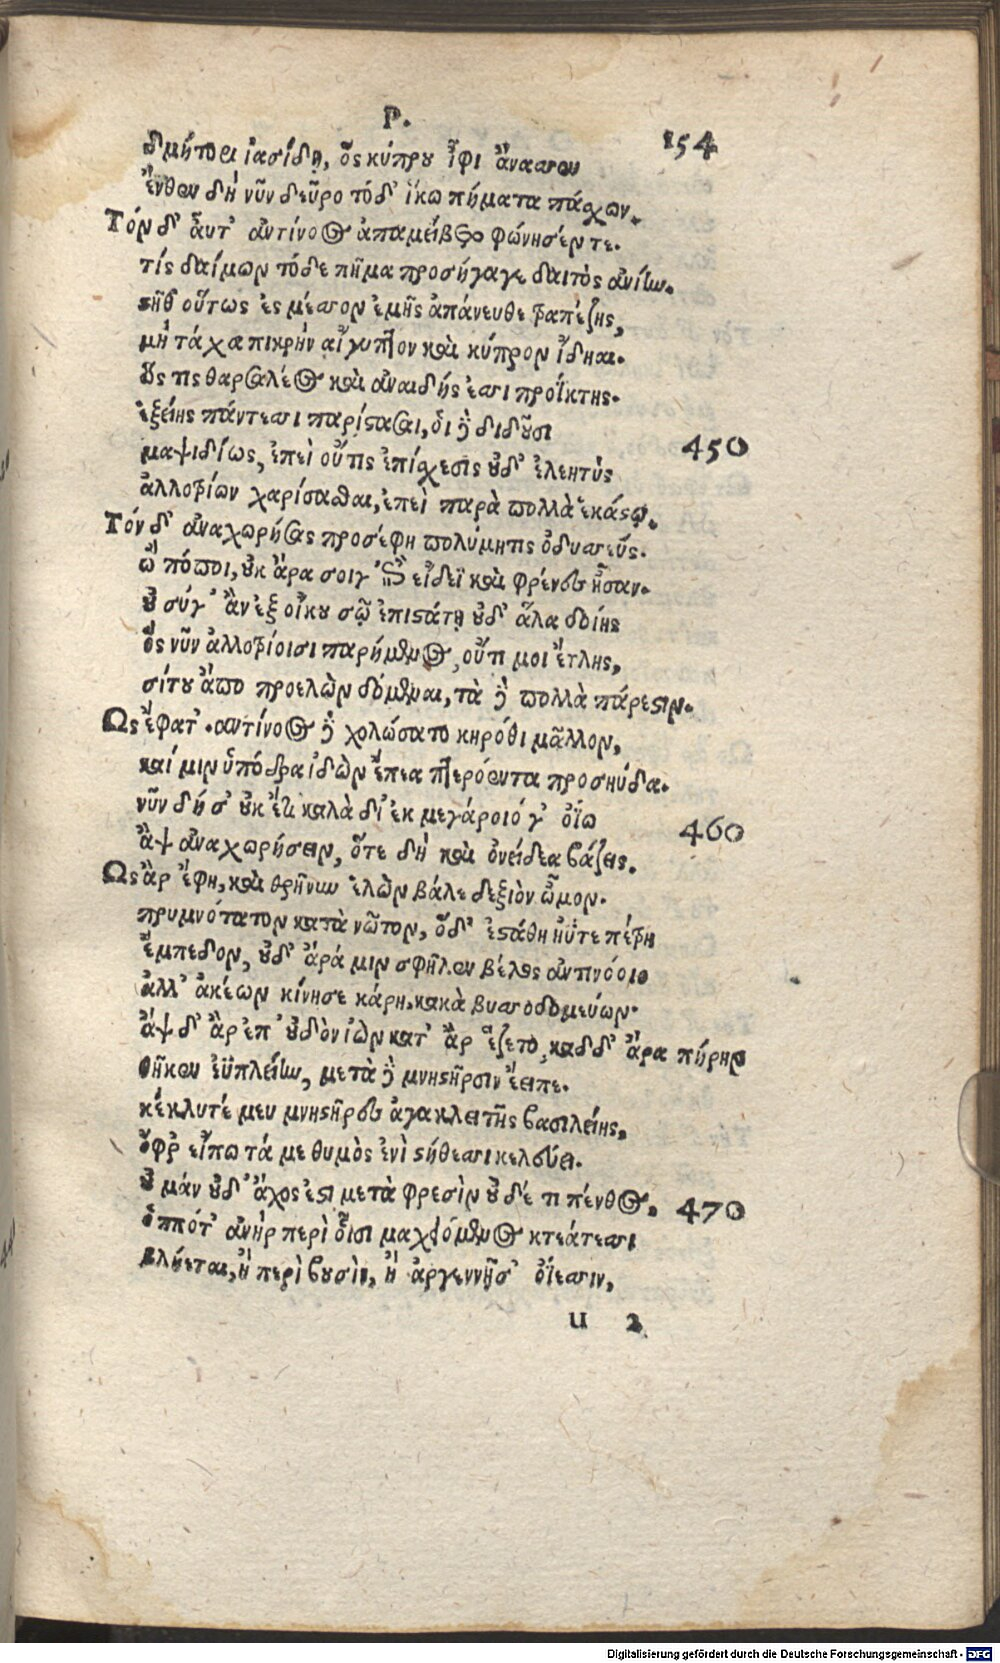 Ρ. 154
δμήτορι ἰασίδῃ, ὃς κύπρου ἶφι ἄνασσεν
ἔνθεν δὴ νῦν δεῦρο τόδ' ἵκω πήματα πάσχων.
Τὸν δ' αὖτ' ἀντίνοος ἀπαμείβετο φώνησέν τε.
τίς δαίμων τόδε πῆμα προσήγαγε δαιτὸς ἀνίην.
στῆθ' οὕτως ἐς μέσσον ἐμῆς ἀπάνευθε τραπέζης,
μὴ τάχα πικρὴν αἴγυπτον καὶ κύπρον ἴδηαι.
ὥς τις θαρσαλέος καὶ ἀναιδής ἐσσι προΐκτης.
ἑξείης πάντεσσι παρίστασαι, οἱ δὲ διδοῦσι 450
μαψιδίως, ἐπεὶ οὔτις ἐπίσχεσις οὐδ' ἐλεητὺς
ἀλλοτρίων χαρίσασθαι, ἐπεὶ παρὰ πολλὰ ἑκάστῳ.
Τὸν δ' ἀναχωρήσας προσέφη πολύμητις ὀδυσσεύς.
ὢ πόποι, οὐκ ἄρα σοίγ' ἐπὶ εἴδεϊ καὶ φρένες ἦσαν.
οὐ σύγ' ἂν ἐξ οἴκου σῷ ἐπιστάτῃ οὐδ' ἅλα δοίης
ὃς νῦν ἀλλοτρίοισι παρήμενος, οὔτι μοι ἔτλης,
σίτου ἄπο προελὼν δόμεναι, τὰ δὲ πολλὰ πάρεστιν.
Ὣς ἔφατ'. ἀντίνοος δὲ χολώσατο κηρόθι μᾶλλον,
καί μιν ὑπόδρα ἰδὼν ἔπεα πτερόεντα προσηύδα.
νῦν δή σ' οὐκ ἔτι καλὰ δι' ἐκ μεγάροιό γ' ὀΐω 460
ἂψ ἀναχωρήσειν, ὅτε δὴ καὶ ὀνείδεα βάζεις.
Ὣς ἂρ ἔφη, καὶ θρῆνυν ἑλὼν βάλε δεξιὸν ὦμον.
πρυμνότατον κατὰ νῶτον, ὅδ' ἐστάθη ἠΰτε πέτρη
ἔμπεδον, οὐδ' ἄρά μιν σφῆλεν βέλος ἀντινόοιο
ἀλλ' ἀκέων κίνησε κάρη, κακὰ βυσσοδομεύων.
ἂψ δ' ἂρ ἐπ' οὐδὸν ἰὼν κατ' ἂρ ἕζετο, καδδ' ἄρα πήρην
θῆκεν ἐϋπλείην, μετὰ δὲ μνηστῆρσιν ἔειπε.
κέκλυτέ μευ μνηστῆρες ἀγακλειτῆς βασιλείης,
ὄφρ' εἴπω τά με θυμὸς ἐνὶ στήθεσσι κελεύει.
οὐ μὰν οὐδ' ἄχος ἐστὶ μετὰ φρεσὶν οὐδέ τι πένθος. 470
ὁππότ' ἀνὴρ περὶ οἷσι μαχειόμενος κτεάτεσσι
βλήεται, ἢ περὶ βουσὶν, ἢ ἀργεννῇσ' ὀΐεσσιν,
u 2
Digitalisierung gefördert durch die Deutsche Forschungsgemeinschaft - DFG